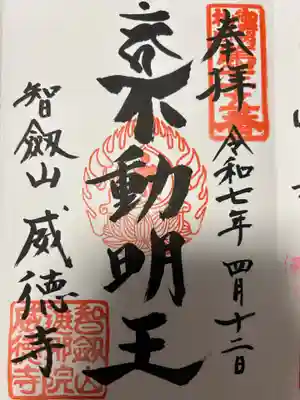 奉拝
令和七年 四月十二日
不動明王
智劔山 威徳寺
智劔山
威徳寺